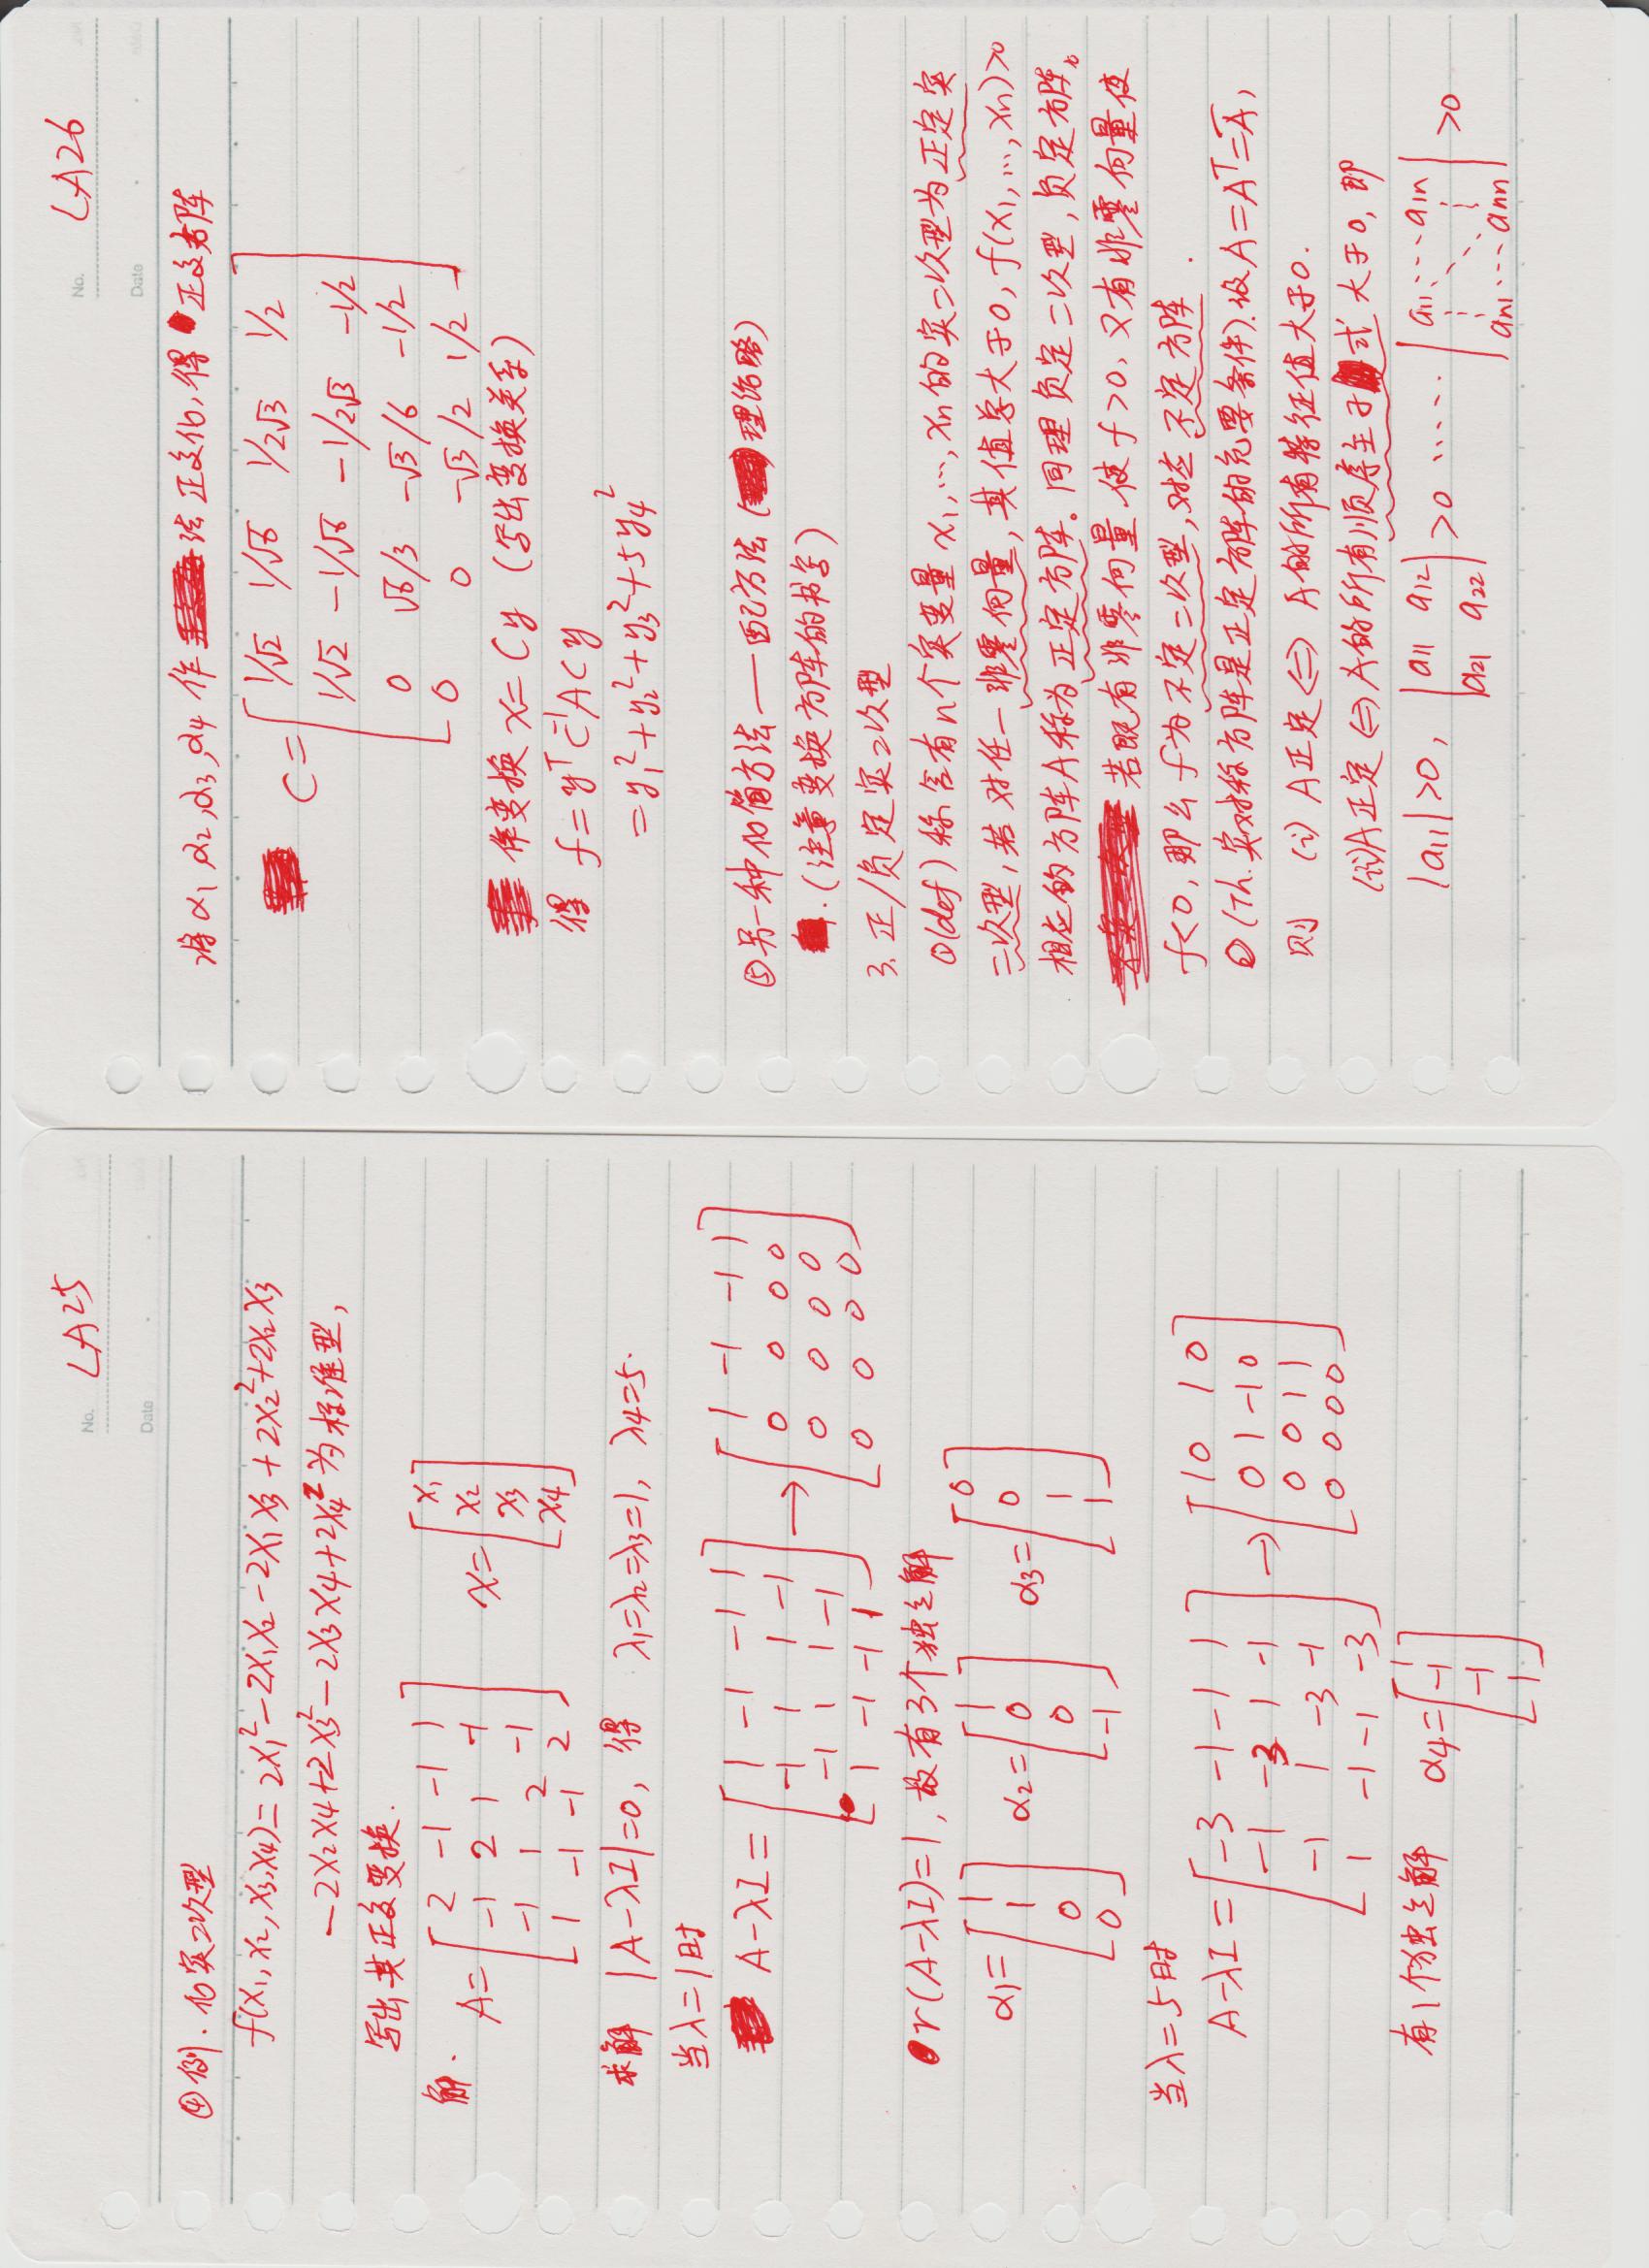 No. LA25
Date
④例. 化实二次型
f(x₁, x₂, x₃, x₄) = 2x₁² - 2x₁x₂ - 2x₁x₃ + 2x₂² + 2x₂x₃
- 2x₂x₄ + 2x₃² - 2x₃x₄ + 2x₄² 为标准型,
写出其正交变换.
解.
A = [2 -1 -1 1
-1 2 1 -1
-1 1 2 -1
1 -1 -1 2]
x = [x₁
x₂
x₃
x₄]
求解 |A-λI|=0, 得 λ₁=λ₂=λ₃=1, λ₄=5.
当λ=1时
A-λI = [1 -1 -1 1
-1 1 1 -1
-1 1 1 -1
1 -1 -1 1]
→ [1 -1 -1 1
0 0 0 0
0 0 0 0
0 0 0 0]
r(A-λI)=1, 故有3个独立解
α₁ = [1
1
0
0]
α₂ = [1
0
0
-1]
α₃ = [0
0
1
1]
当λ=5时
A-λI = [-3 -1 -1 1
-1 -3 1 -1
-1 1 -3 -1
1 -1 -1 -3]
→ [1 0 1 0
0 1 -1 0
0 0 1 1
0 0 0 0]
有1个独立解 α₄ = [1
-1
-1
1]
No. LA26
Date
将α₁,α₂,α₃,α₄作法正交化, 得正交方阵
C = [1/√2 1/√6 1/2√3 1/2
1/√2 -1/√6 -1/2√3 -1/2
0 √6/3 -√3/6 -1/2
0 0 -√3/2 1/2]
作变换 x=Cy (写出变换关系)
得 f=yᵀC⁻¹ACy
=y₁²+y₂²+y₃²+5y₄²
⑤另一种化简方法——配方法(理论略)
.(注意变换方阵的书写)
3. 正/负定实二次型
①(def) 称含有n个实变量x₁,…,xₙ的实二次型为正定实
二次型, 若对任一非零向量, 其值总大于0, f(x₁,…,xₙ)>0
相应的方阵A称为正定方阵。同理负定二次型, 负定方阵。
若既有非零向量使f>0, 又有非零向量使
f<0, 那么f为不定二次型, 对应不定方阵.
②(Th. 实对称方阵是正定方阵的充要条件). 设A=Aᵀ=A̅,
则 (i) A正定⇔A的所有特征值大于0.
(ii)A正定⇔A的所有顺序主子式大于0, 即
|a₁₁|>0, |a₁₁ a₁₂
a₂₁ a₂₂|>0 ······ |a₁₁ ··· a₁ₙ
⋮ ⋱ ⋮
aₙ₁ ··· aₙₙ|>0